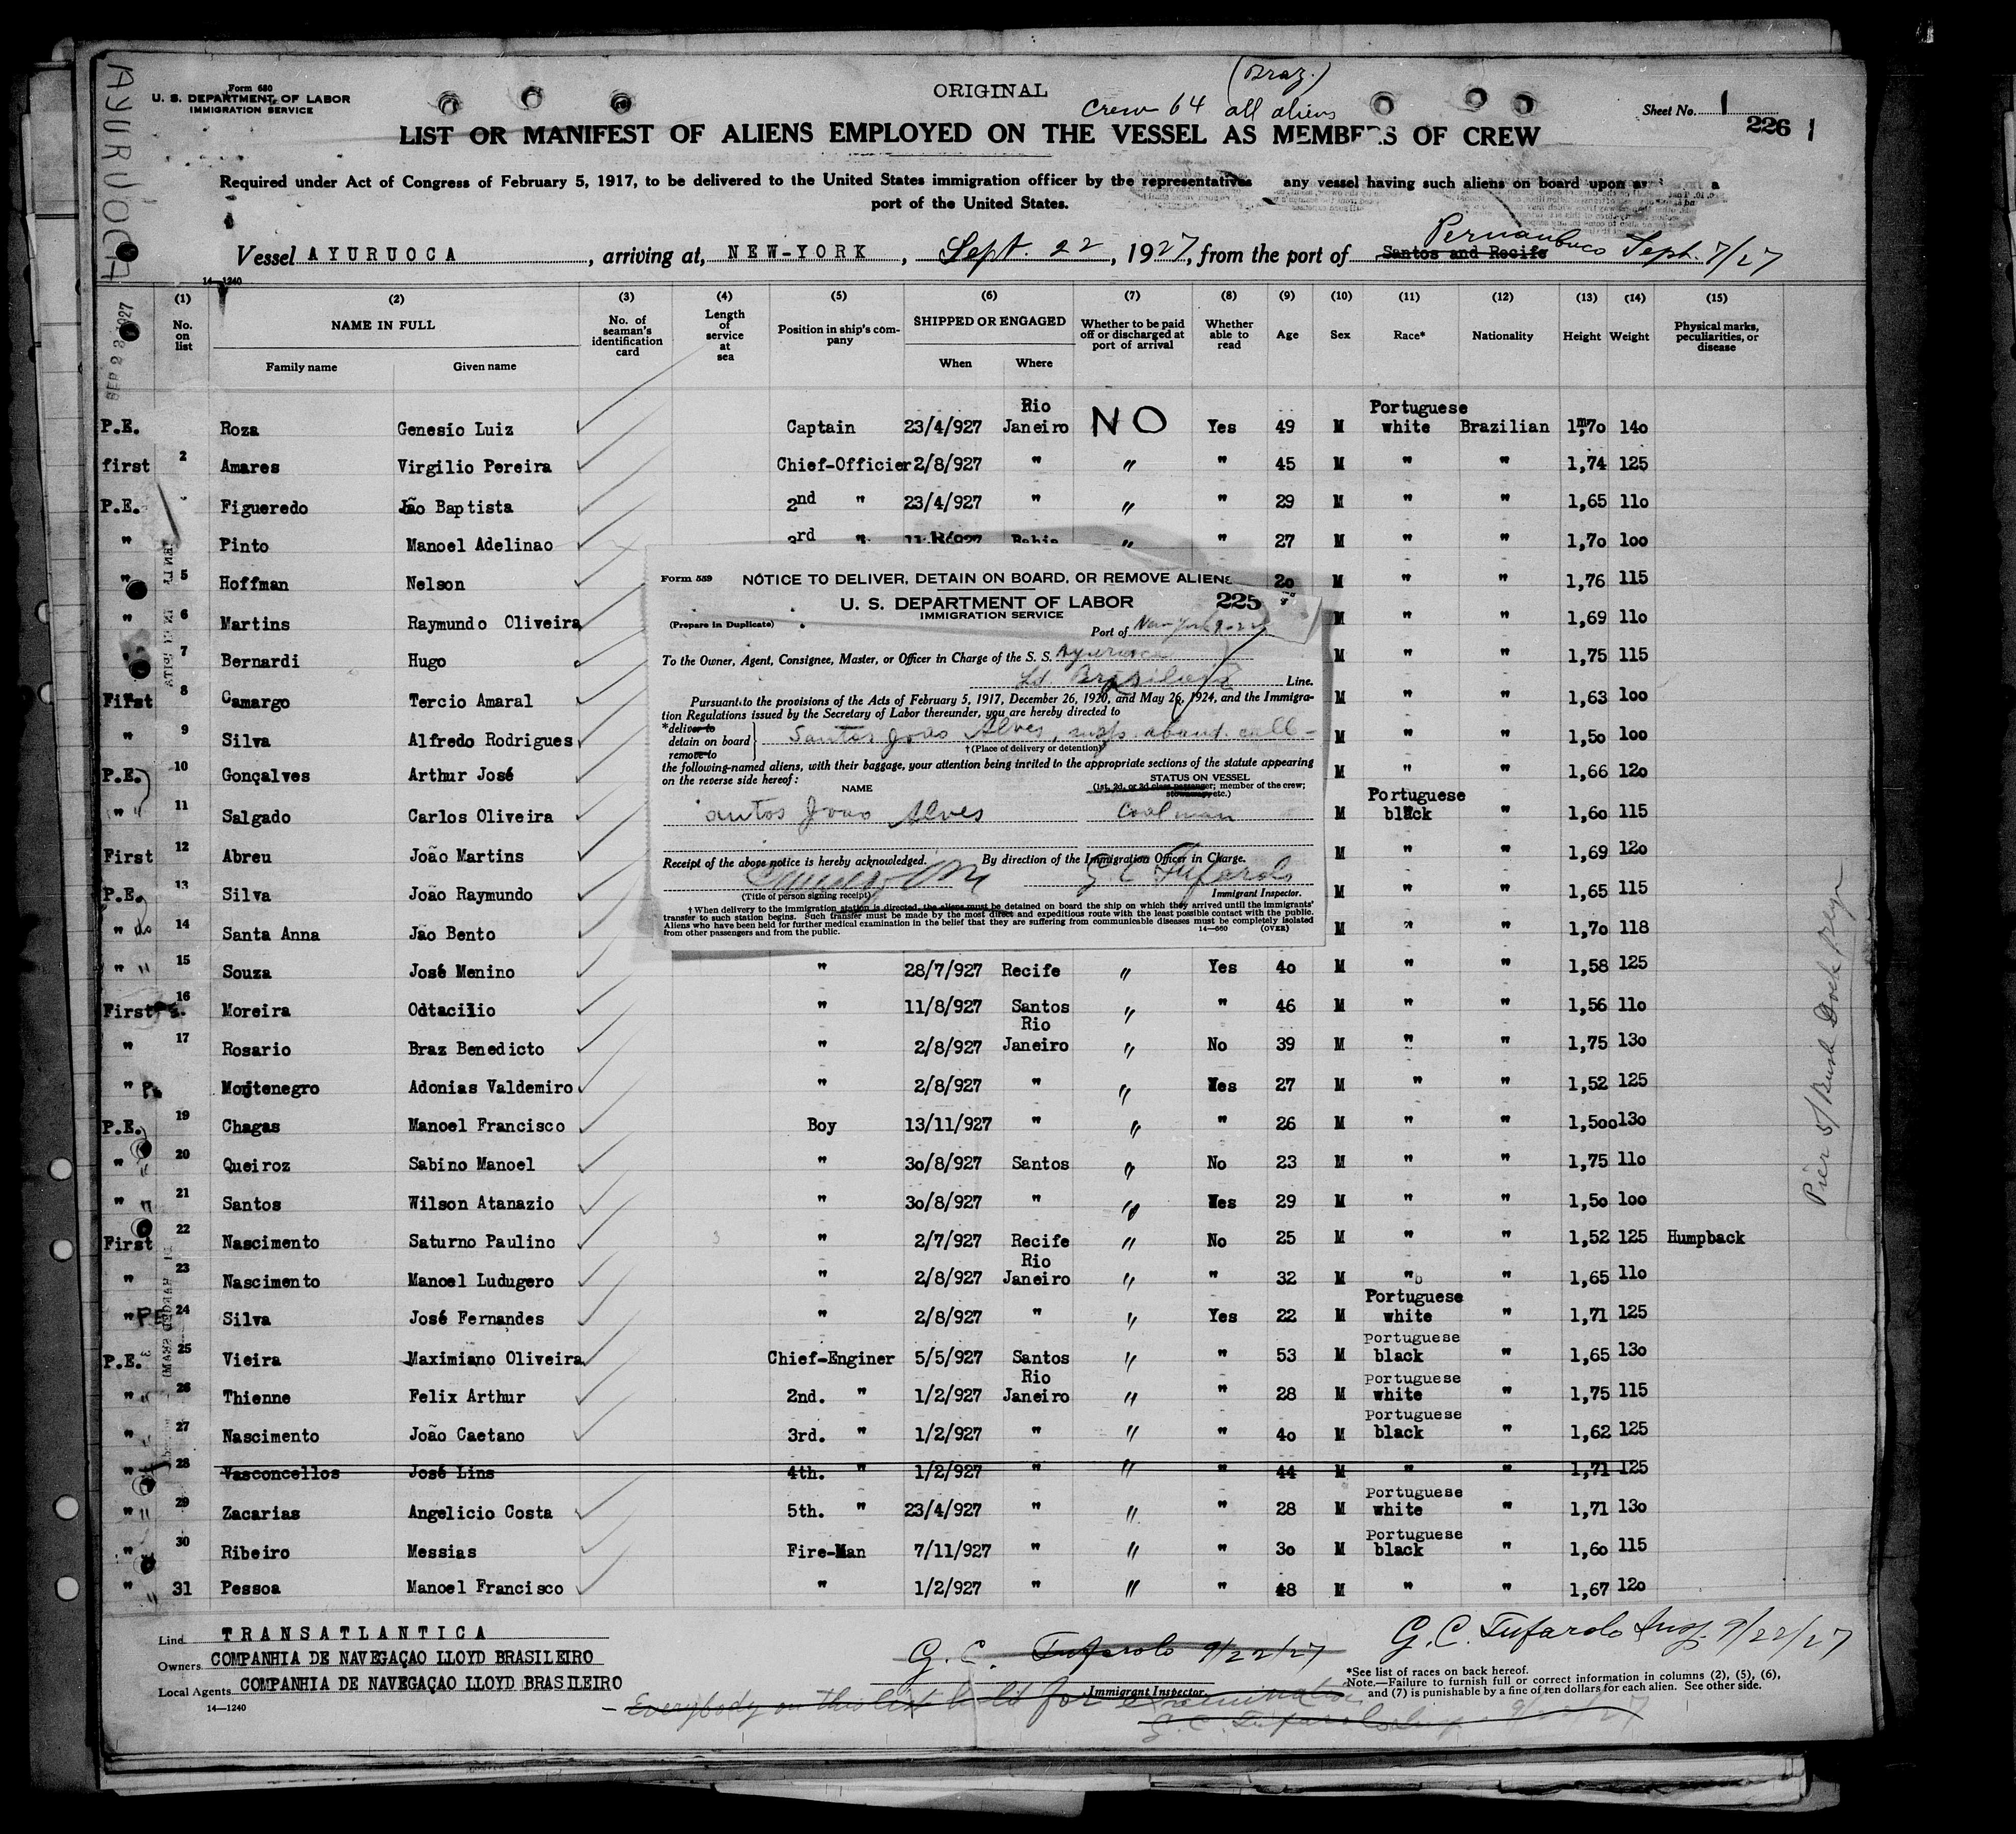 AYURUOCA
Form 680
U. S. DEPARTMENT OF LABOR
IMMIGRATION SERVICE
ORIGINAL
(Braz.)
Crew 64 all aliens
Sheet No. 1
226
LIST OR MANIFEST OF ALIENS EMPLOYED ON THE VESSEL AS MEMBERS OF CREW
Required under Act of Congress of February 5, 1917, to be delivered to the United States immigration officer by the representatives any vessel having such aliens on board upon a
port of the United States.
Vessel AYURUOCA, arriving at, NEW-YORK, Sept. 22, 1927, from the port of Santos and Recife Pernambuco Sept. 7/27
14-1240
(1) No. on list (2) NAME IN FULL Family name Given name (3) No. of seaman's identification card (4) Length of service at sea (5) Position in ship's company (6) SHIPPED OR ENGAGED When Where (7) Whether to be paid off or discharged at port of arrival (8) Whether able to read (9) Age (10) Sex (11) Race* (12) Nationality (13) Height (14) Weight (15) Physical marks, peculiarities, or disease
P.E. Roza Genesio Luiz Captain 23/4/927 Rio Janeiro NO Yes 49 M Portuguese white Brazilian 1m70 140
first 2 Amares Virgilio Pereira Chief-Officier 2/8/927 " " " 45 M " " 1,74 125
P.E. Figueredo Jão Baptista 2nd " 23/4/927 " " " 29 M " " 1,65 110
" Pinto Manoel Adelinao 3rd " Bahia " " 27 M " " 1,70 100
" 5 Hoffman Nelson 20 M " " 1,76 115
" 6 Martins Raymundo Oliveira M " " 1,69 110
" 7 Bernardi Hugo M " " 1,75 115
First 8 Camargo Tercio Amaral M " " 1,63 100
" 9 Silva Alfredo Rodrigues M " " 1,50 100
P.E. 10 Gonçalves Arthur José M " " 1,66 120
" " 11 Salgado Carlos Oliveira M Portuguese black " 1,60 115
First 12 Abreu João Martins M " " 1,69 120
P.E. 13 Silva João Raymundo M " " 1,65 115
" do 14 Santa Anna Jão Bento M " " 1,70 118
" " 15 Souza José Menino " 28/7/927 Recife " Yes 40 M " " 1,58 125
First 16 Moreira Odtacilio " 11/8/927 Santos " " 46 M " " 1,56 110
" 17 Rosario Braz Benedicto " 2/8/927 Rio Janeiro " No 39 M " " 1,75 130
" PE Montenegro Adonias Valdemiro " 2/8/927 " " Yes 27 M " " 1,52 125
P.E. 19 Chagas Manoel Francisco Boy 13/11/927 " " " 26 M " " 1,500 130
" " 20 Queiroz Sabino Manoel " 30/8/927 Santos " No 23 M " " 1,75 110
" " 21 Santos Wilson Atanazio " 30/8/927 " " Yes 29 M " " 1,50 100
First 22 Nascimento Saturno Paulino " 2/7/927 Recife " No 25 M " " 1,52 125 Humpback
" 23 Nascimento Manoel Ludugero " 2/8/927 Rio Janeiro " " 32 M " " 1,65 110
" PE 24 Silva José Fernandes " 2/8/927 " " Yes 22 M Portuguese white " 1,71 125
P.E. 25 Vieira Maximiano Oliveira Chief-Enginer 5/5/927 Santos " " 53 M Portuguese black " 1,65 130
" " 26 Thienne Felix Arthur 2nd. " 1/2/927 Rio Janeiro " " 28 M Portuguese white " 1,75 115
" 27 Nascimento João Caetano 3rd. " 1/2/927 " " " 40 M Portuguese black " 1,62 125
" 28 Vasconcellos José Lins 4th. " 1/2/927 " " " 44 M " " 1,71 125
" " 29 Zacarias Angelicio Costa 5th. " 23/4/927 " " " 28 M Portuguese white " 1,71 130
" 30 Ribeiro Messias Fire-Man 7/11/927 " " " 30 M Portuguese black " 1,60 115
" " 31 Pessoa Manoel Francisco " 1/2/927 " " " 48 M " " 1,67 120
Form 559 NOTICE TO DELIVER, DETAIN ON BOARD, OR REMOVE ALIENS
U. S. DEPARTMENT OF LABOR
225
IMMIGRATION SERVICE
(Prepare in Duplicate)
Port of New York 9-22
To the Owner, Agent, Consignee, Master, or Officer in Charge of the S. S. Ayuruoca
Ld. Brasileiro Line.
Pursuant to the provisions of the Acts of February 5, 1917, December 26, 1920, and May 26, 1924, and the Immigra-
tion Regulations issued by the Secretary of Labor thereunder, you are hereby directed to
*deliver to
detain on board
remove to
Santos Joao Alves,
†(Place of delivery or detention)
the following-named aliens, with their baggage, your attention being invited to the appropriate sections of the statute appearing
on the reverse side hereof:
NAME
STATUS ON VESSEL
(1st, 2d, or 3d class passenger; member of the crew;
stowaway, etc.)
antos Joao Alves Coalman
Receipt of the above notice is hereby acknowledged. By direction of the Immigration Officer in Charge.
G. C. Tufarolo
(Title of person signing receipt) Immigrant Inspector.
† When delivery to the immigration station is directed, the aliens must be detained on board the ship on which they arrived until the immigrants'
transfer to such station begins. Such transfer must be made by the most direct and expeditious route with the least possible contact with the public.
Aliens who have been held for further medical examination in the belief that they are suffering from communicable diseases must be completely isolated
from other passengers and from the public. 14-660 (OVER)
Pier 5/ Bush Dock
Lind TRANSATLANTICA
Owners COMPANHIA DE NAVEGAÇAO LLOYD BRASILEIRO
Local Agents COMPANHIA DE NAVEGAÇAO LLOYD BRASILEIRO
14-1240
G. C. Tufarolo 9/22/27
Immigrant Inspector
G. C. Tufarolo Insp. 9/22/27
*See list of races on back hereof.
Note.—Failure to furnish full or correct information in columns (2), (5), (6),
and (7) is punishable by a fine of ten dollars for each alien. See other side.
Everybody on this list held for examination
G. C. Tufarolo Insp. 9/22/27